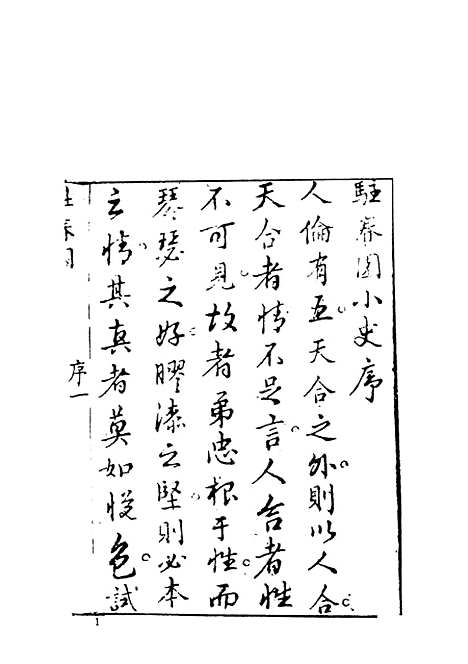 駐春園小史序
人倫有五天合之外則以人合
天合者情不足言人合者性
不可見故者弟忠根于性而
琴瑟之好膠漆之堅則必本
之情其真者莫如悅色試
駐春園
序一
1